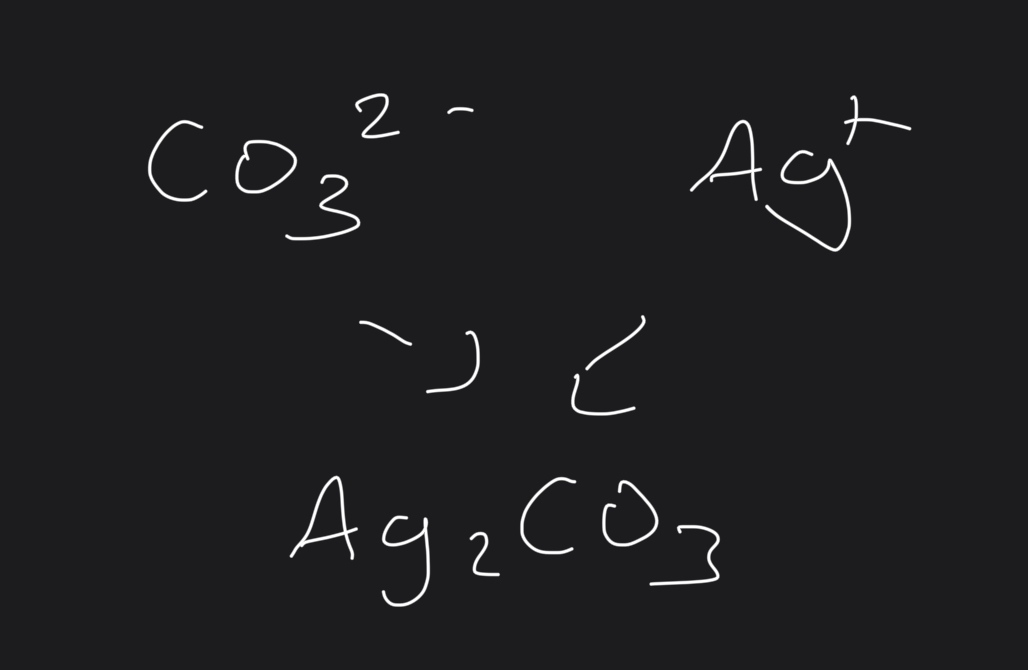 CO₃²⁻ Ag⁺
Ag₂CO₃